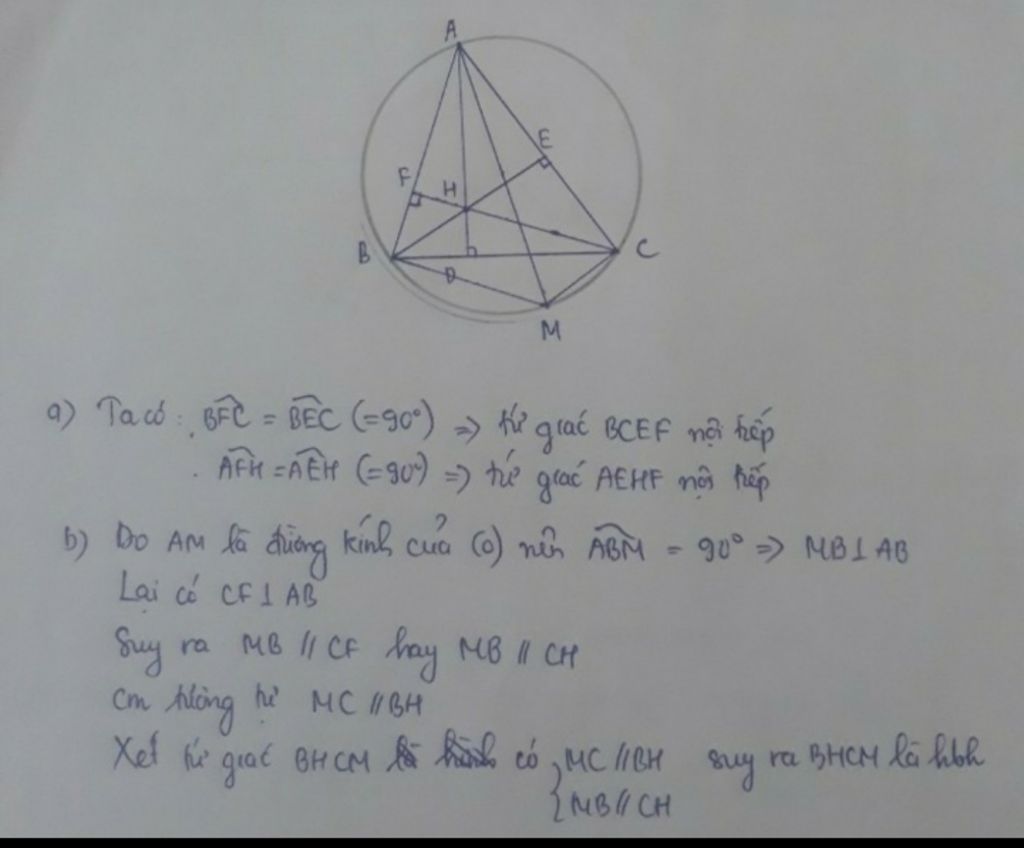 A
E
F H
B C
D
M
a) Ta có : BFC = BEC (=90°) => tứ giác BCEF nội tiếp
. AFH = AEH (=90°) => tứ giác AEHF nội tiếp
b) Do AM là đường kính của (O) nên ABM = 90° => MB ⊥ AB
Lại có CF ⊥ AB
Suy ra MB // CF hay MB // CH
Cm tương tự MC // BH
Xét tứ giác BHCM có { MC // BH suy ra BHCM là hbh
MB // CH